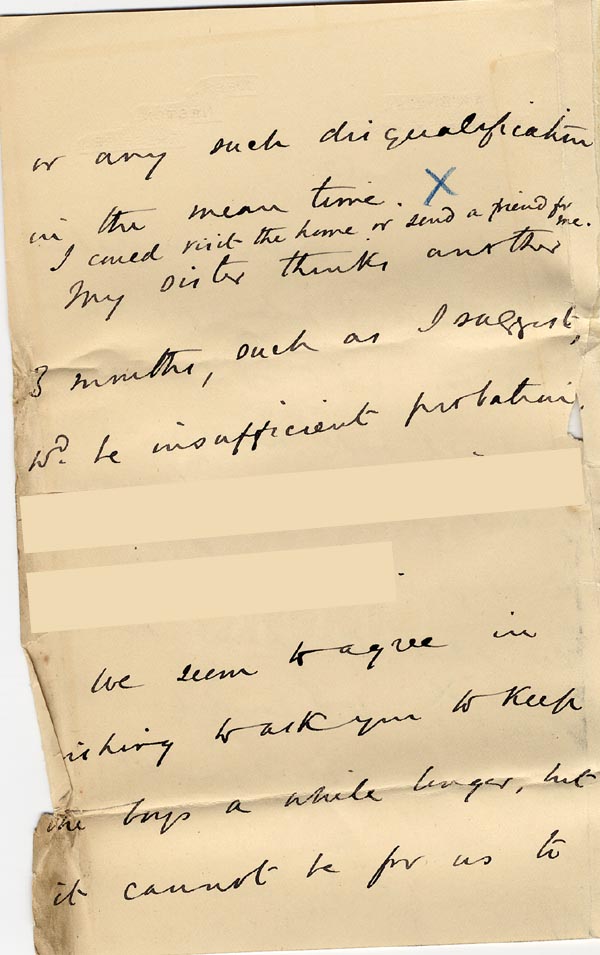 or any such disqualification
in the mean time. X
I could visit the home or send a friend for me.
My sister thinks another
3 months, such as I suggest,
wd. be insufficient probation.
We seem to agree in
wishing to ask you to keep
the boys a while longer, but
it cannot be for us to